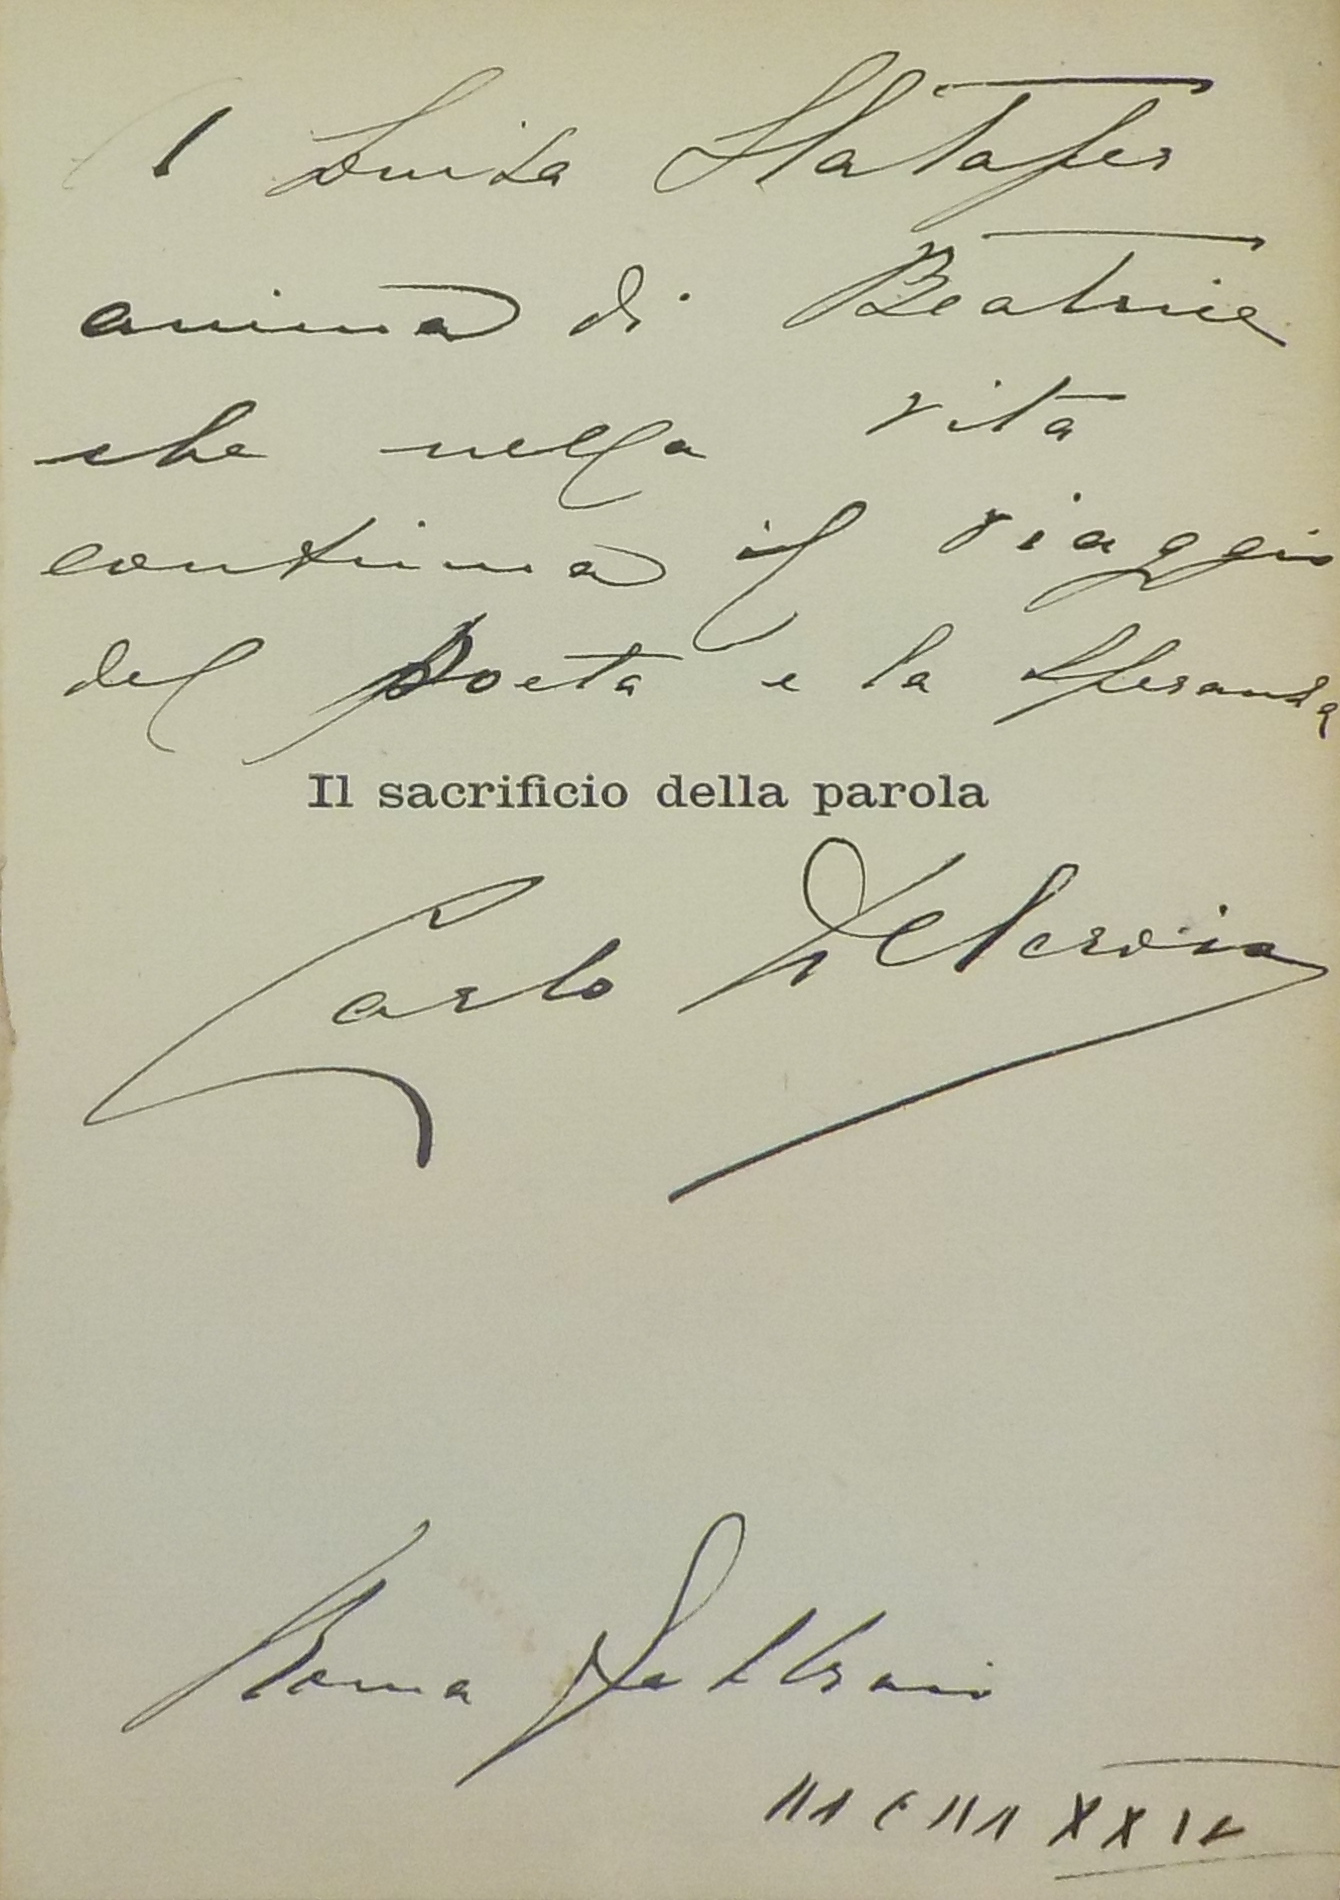 A Luisa Statafer
anima di Beatrice
che nella vita
continua il viaggio
del Poeta e la Speranza
Il sacrificio della parola
Carlo Delcroix
Roma Febbraio
MCMXXIV